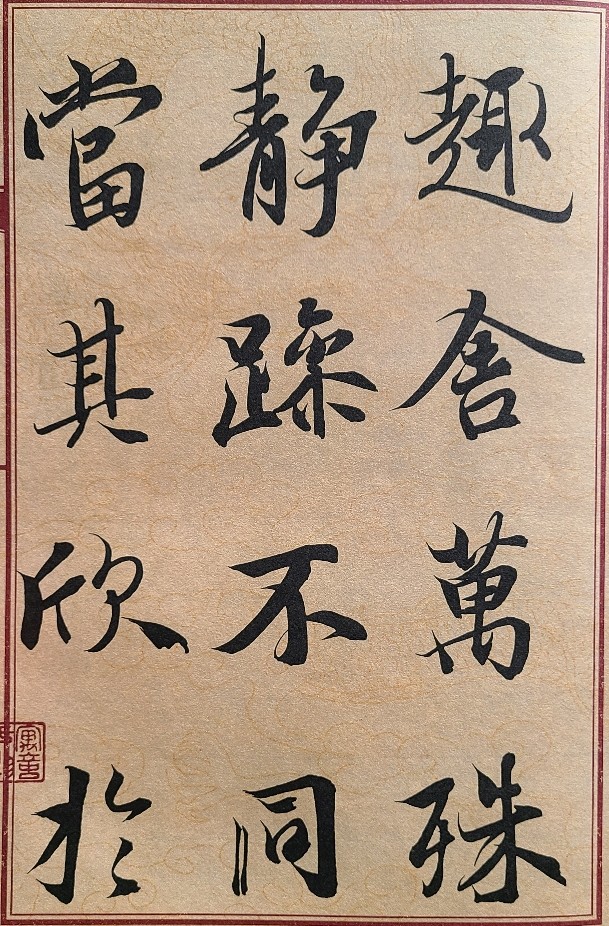 趣舍萬殊
静躁不同
當其欣於